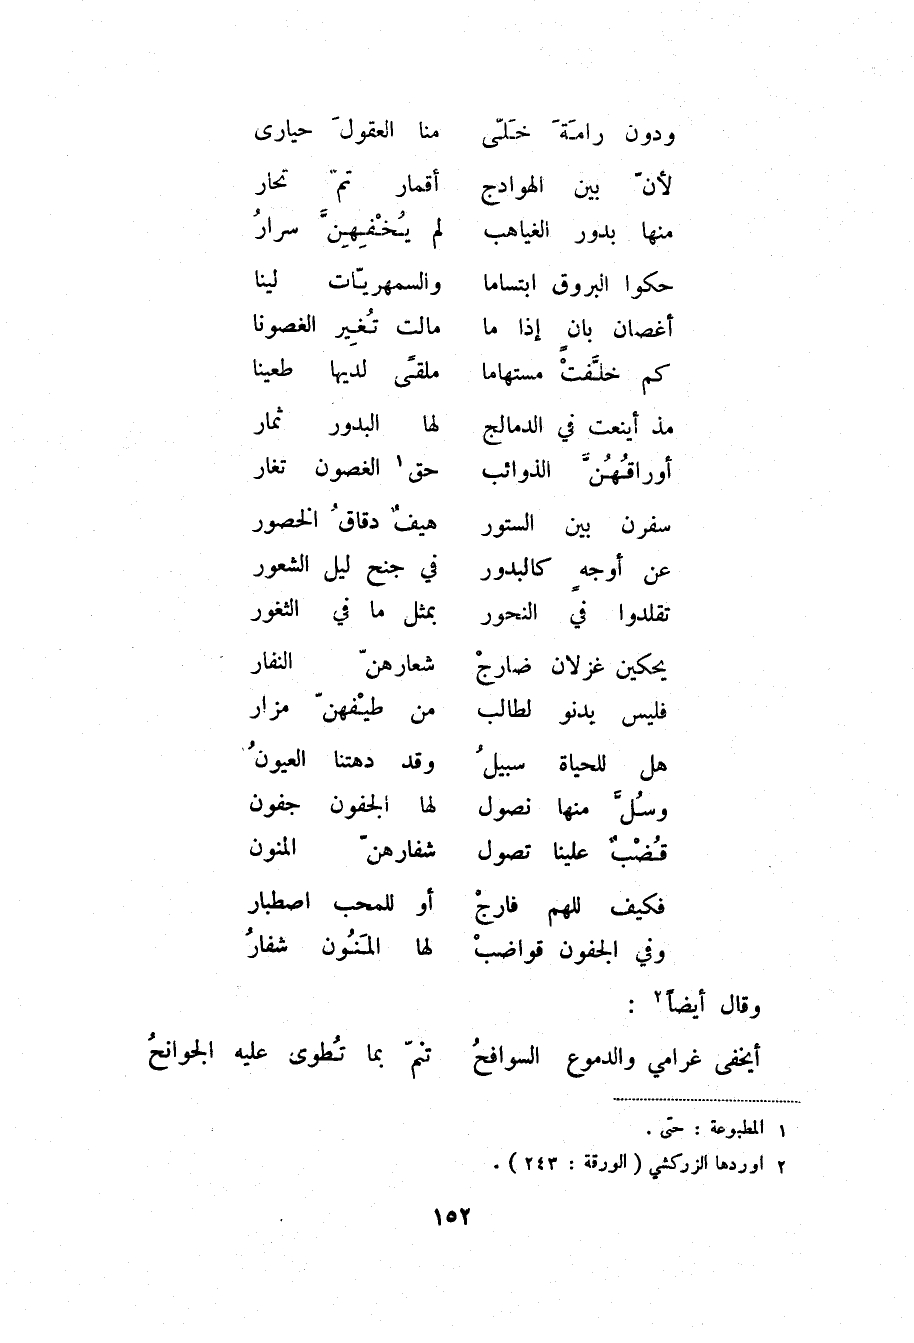 ودون رامَةَ خَلَّى منا العقولَ حيارى
لأنّ بين الهوادج أقمار تمّ تحار
منها بدور الغياهب لم يُخْفِهِنَّ سرارُ
حكوا البروق ابتساما والسمهريّات لينا
أغصان بانٍ إذا ما مالت تُغِير الغصونا
كم خلَّفتْ مستهاما ملقىً لديها طعينا
مذ أينعت في الدمالج لها البدور ثمار
أوراقُهُنَّ الذوائب حق١ الغصون تغار
سفرن بين الستور هيفٌ دقاقُ الخصور
عن أوجهٍ كالبدور في جنح ليل الشعور
تقلدوا في النحور بمثل ما في الثغور
يحكين غزلان ضارجْ شعارهنّ النفار
فليس يدنو لطالب من طيْفهنّ مزار
هل للحياة سبيلُ وقد دهتنا العيونُ
وسُلَّ منها نصول لها الجفون جفون
قُضْبٌ علينا تصول شفارهنّ المنون
فكيف للهم فارجْ أو للمحب اصطبار
وفي الجفون قواضبْ لها المَنُون شفارُ
وقال أيضاً٢ :
أيخفى غرامي والدموع السوافحُ تنمّ بما تُطوى عليه الجوانحُ
١ المطبوعة : حتّى .
٢ اوردها الزركشي ( الورقة : ٢٤٣ ) .
١٥٢